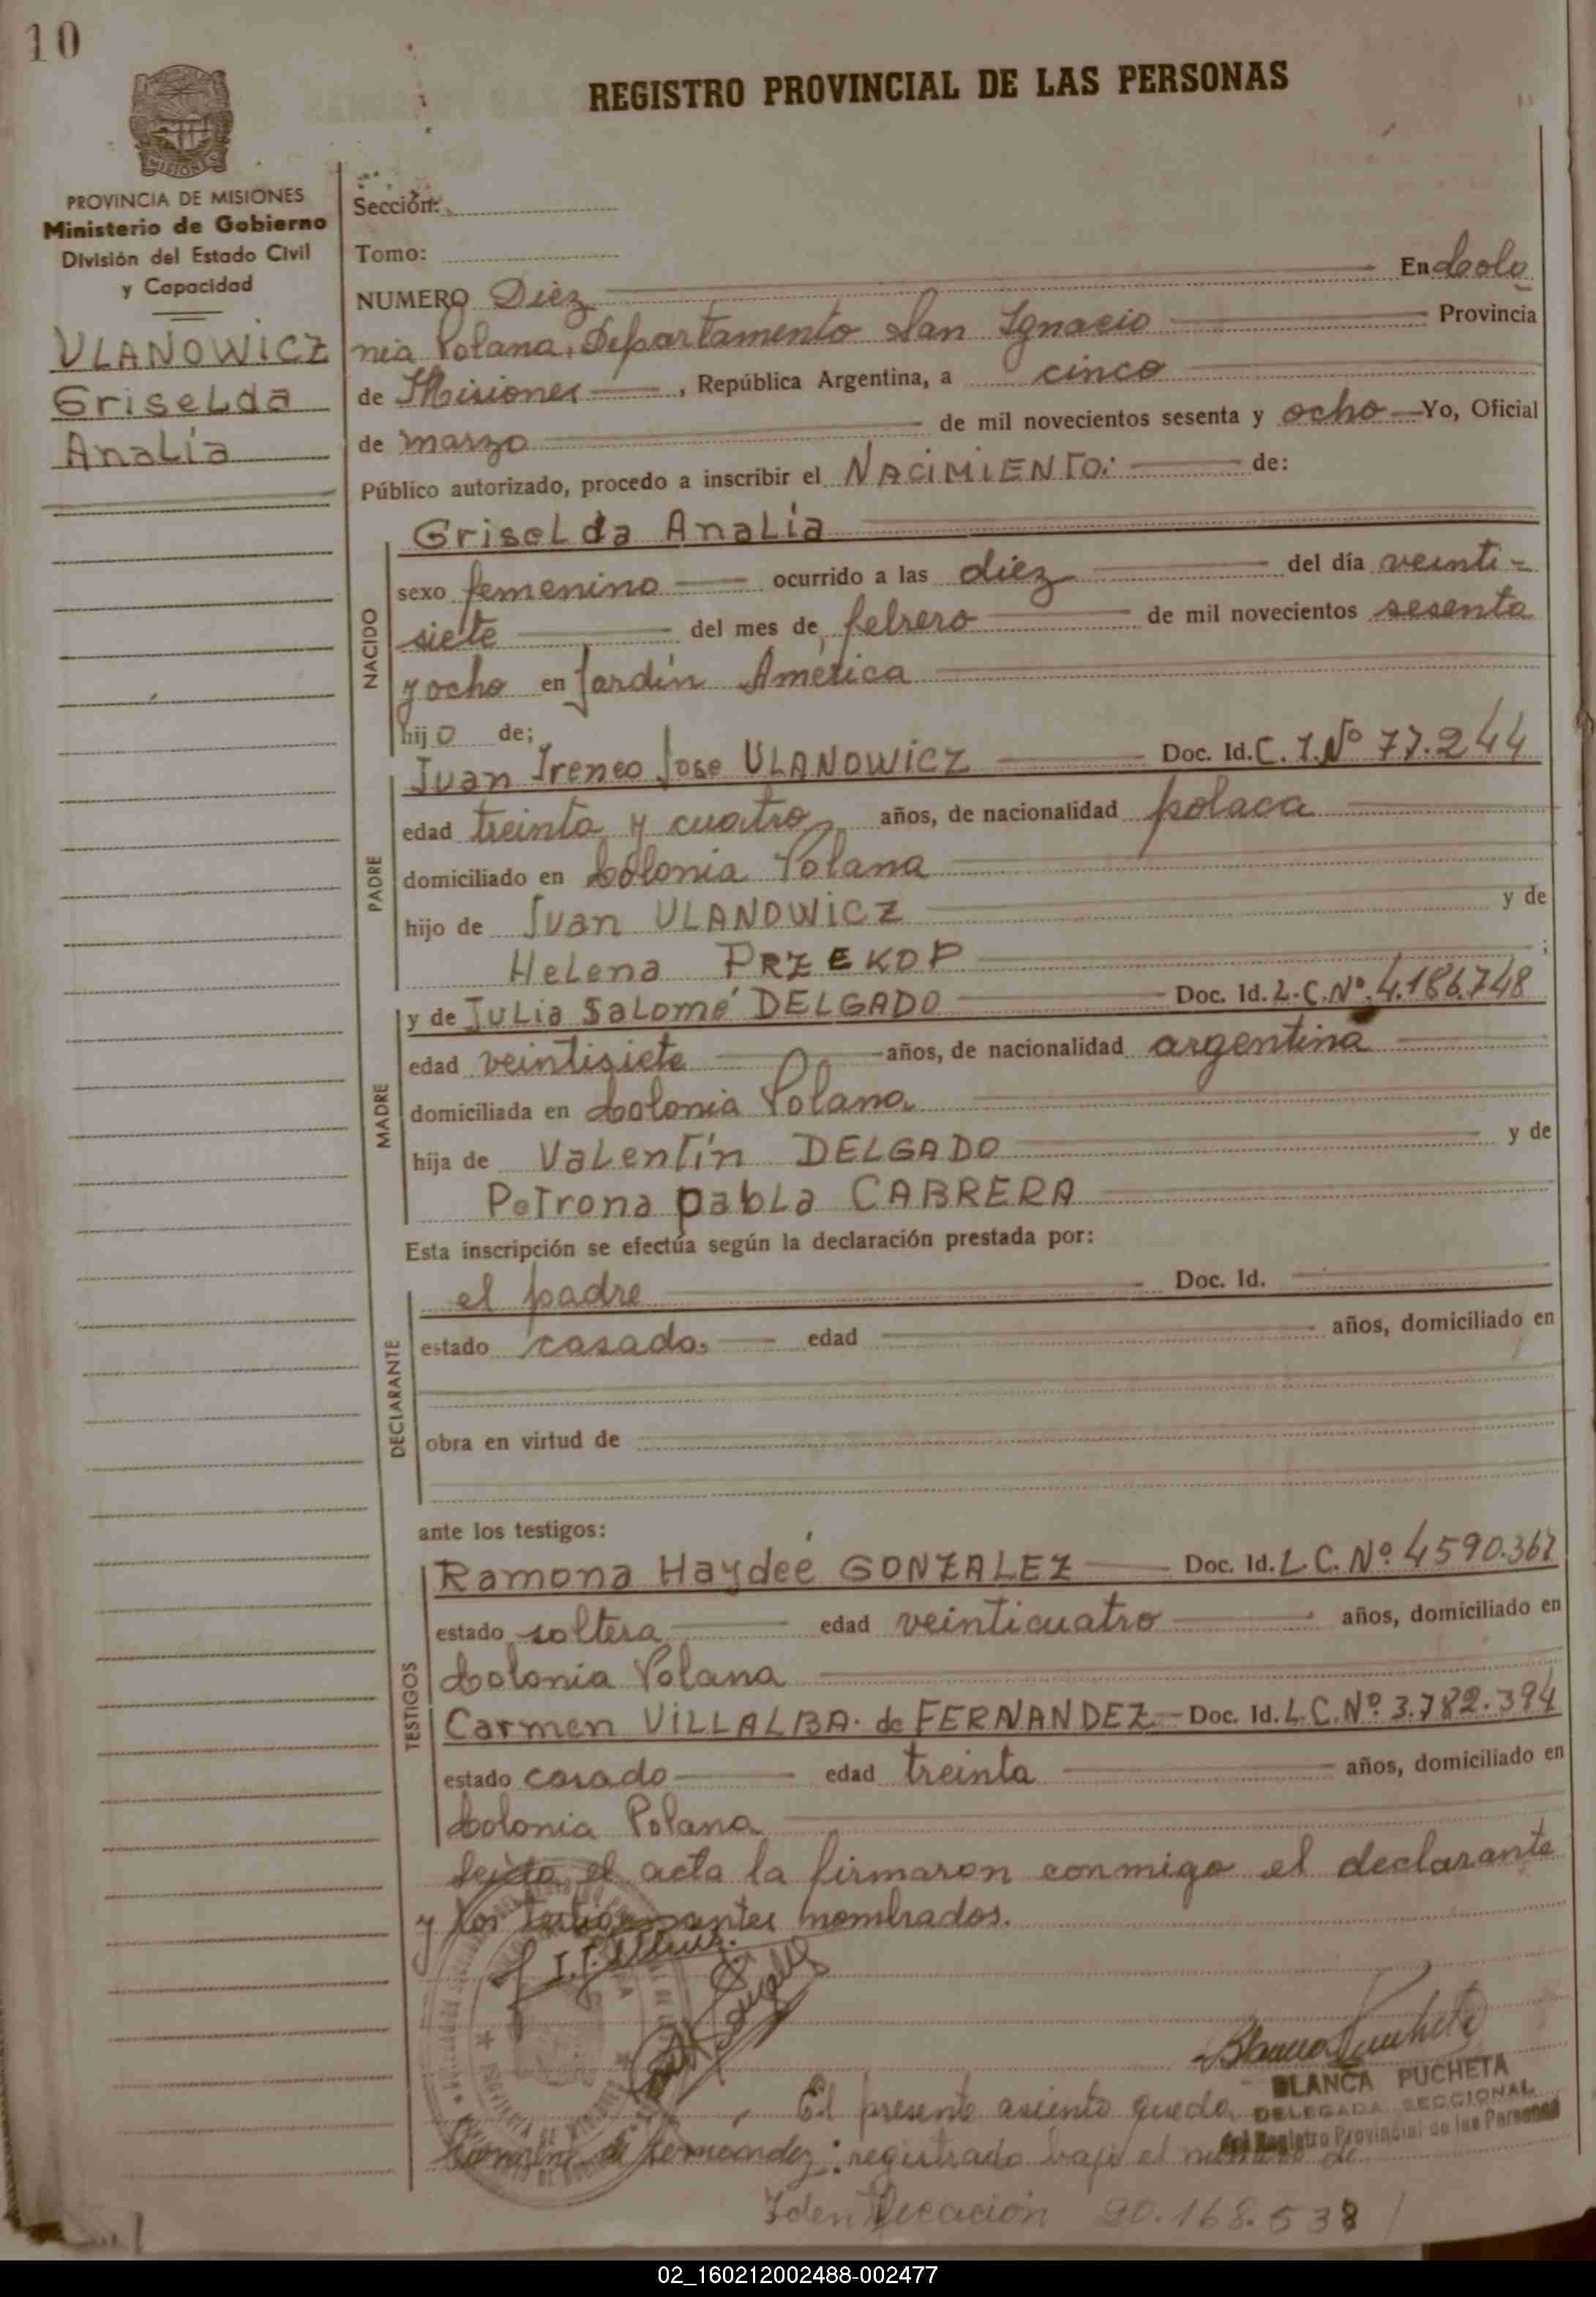 10
REGISTRO PROVINCIAL DE LAS PERSONAS
MISIONES
PROVINCIA DE MISIONES
Ministerio de Gobierno
División del Estado Civil
y Capacidad
VLANOWICZ
Griselda
Analía
Sección:
Tomo:
NUMERO Diez En Colo
nia Polana, Departamento San Ignacio Provincia
de Misiones, República Argentina, a cinco
de marzo de mil novecientos sesenta y ocho Yo, Oficial
Público autorizado, procedo a inscribir el NACIMIENTO: de:
NACIDO
Griselda Analía
sexo femenino ocurrido a las diez del día veinti-
siete del mes de febrero de mil novecientos sesenta
y ocho en Jardín América
hijo de;
PADRE
Juan Ireneo Jose VLANOWICZ Doc. Id. C.I. Nº 77.244
edad treinta y cuatro años, de nacionalidad polaca
domiciliado en Colonia Polana
hijo de Juan VLANOWICZ y de
Helena PRZEKOP ;
MADRE
y de Julia Salomé DELGADO Doc. Id. L.C. Nº 4.186.748
edad veintisiete años, de nacionalidad argentina
domiciliada en Colonia Polana
hija de Valentín DELGADO y de
Petrona Pabla CABRERA
Esta inscripción se efectúa según la declaración prestada por:
DECLARANTE
el padre Doc. Id.
estado casado. edad años, domiciliado en
obra en virtud de
ante los testigos:
TESTIGOS
Ramona Haydeé GONZALEZ Doc. Id. L.C. Nº 4590.367
estado soltera edad veinticuatro años, domiciliado en
Colonia Polana
Carmen VILLALBA de FERNANDEZ Doc. Id. L.C. Nº 3.782.394
estado casado edad treinta años, domiciliado en
Colonia Polana
leída el acta la firmaron conmigo el declarante
y los testigos antes nombrados.
Blanca Pucheta
BLANCA PUCHETA
DELEGADA SECCIONAL
del Registro Provincial de las Personas
El presente asiento queda
Carmen de Fernández registrado bajo el número de
Identificación 20.168.538
02_160212002488-002477